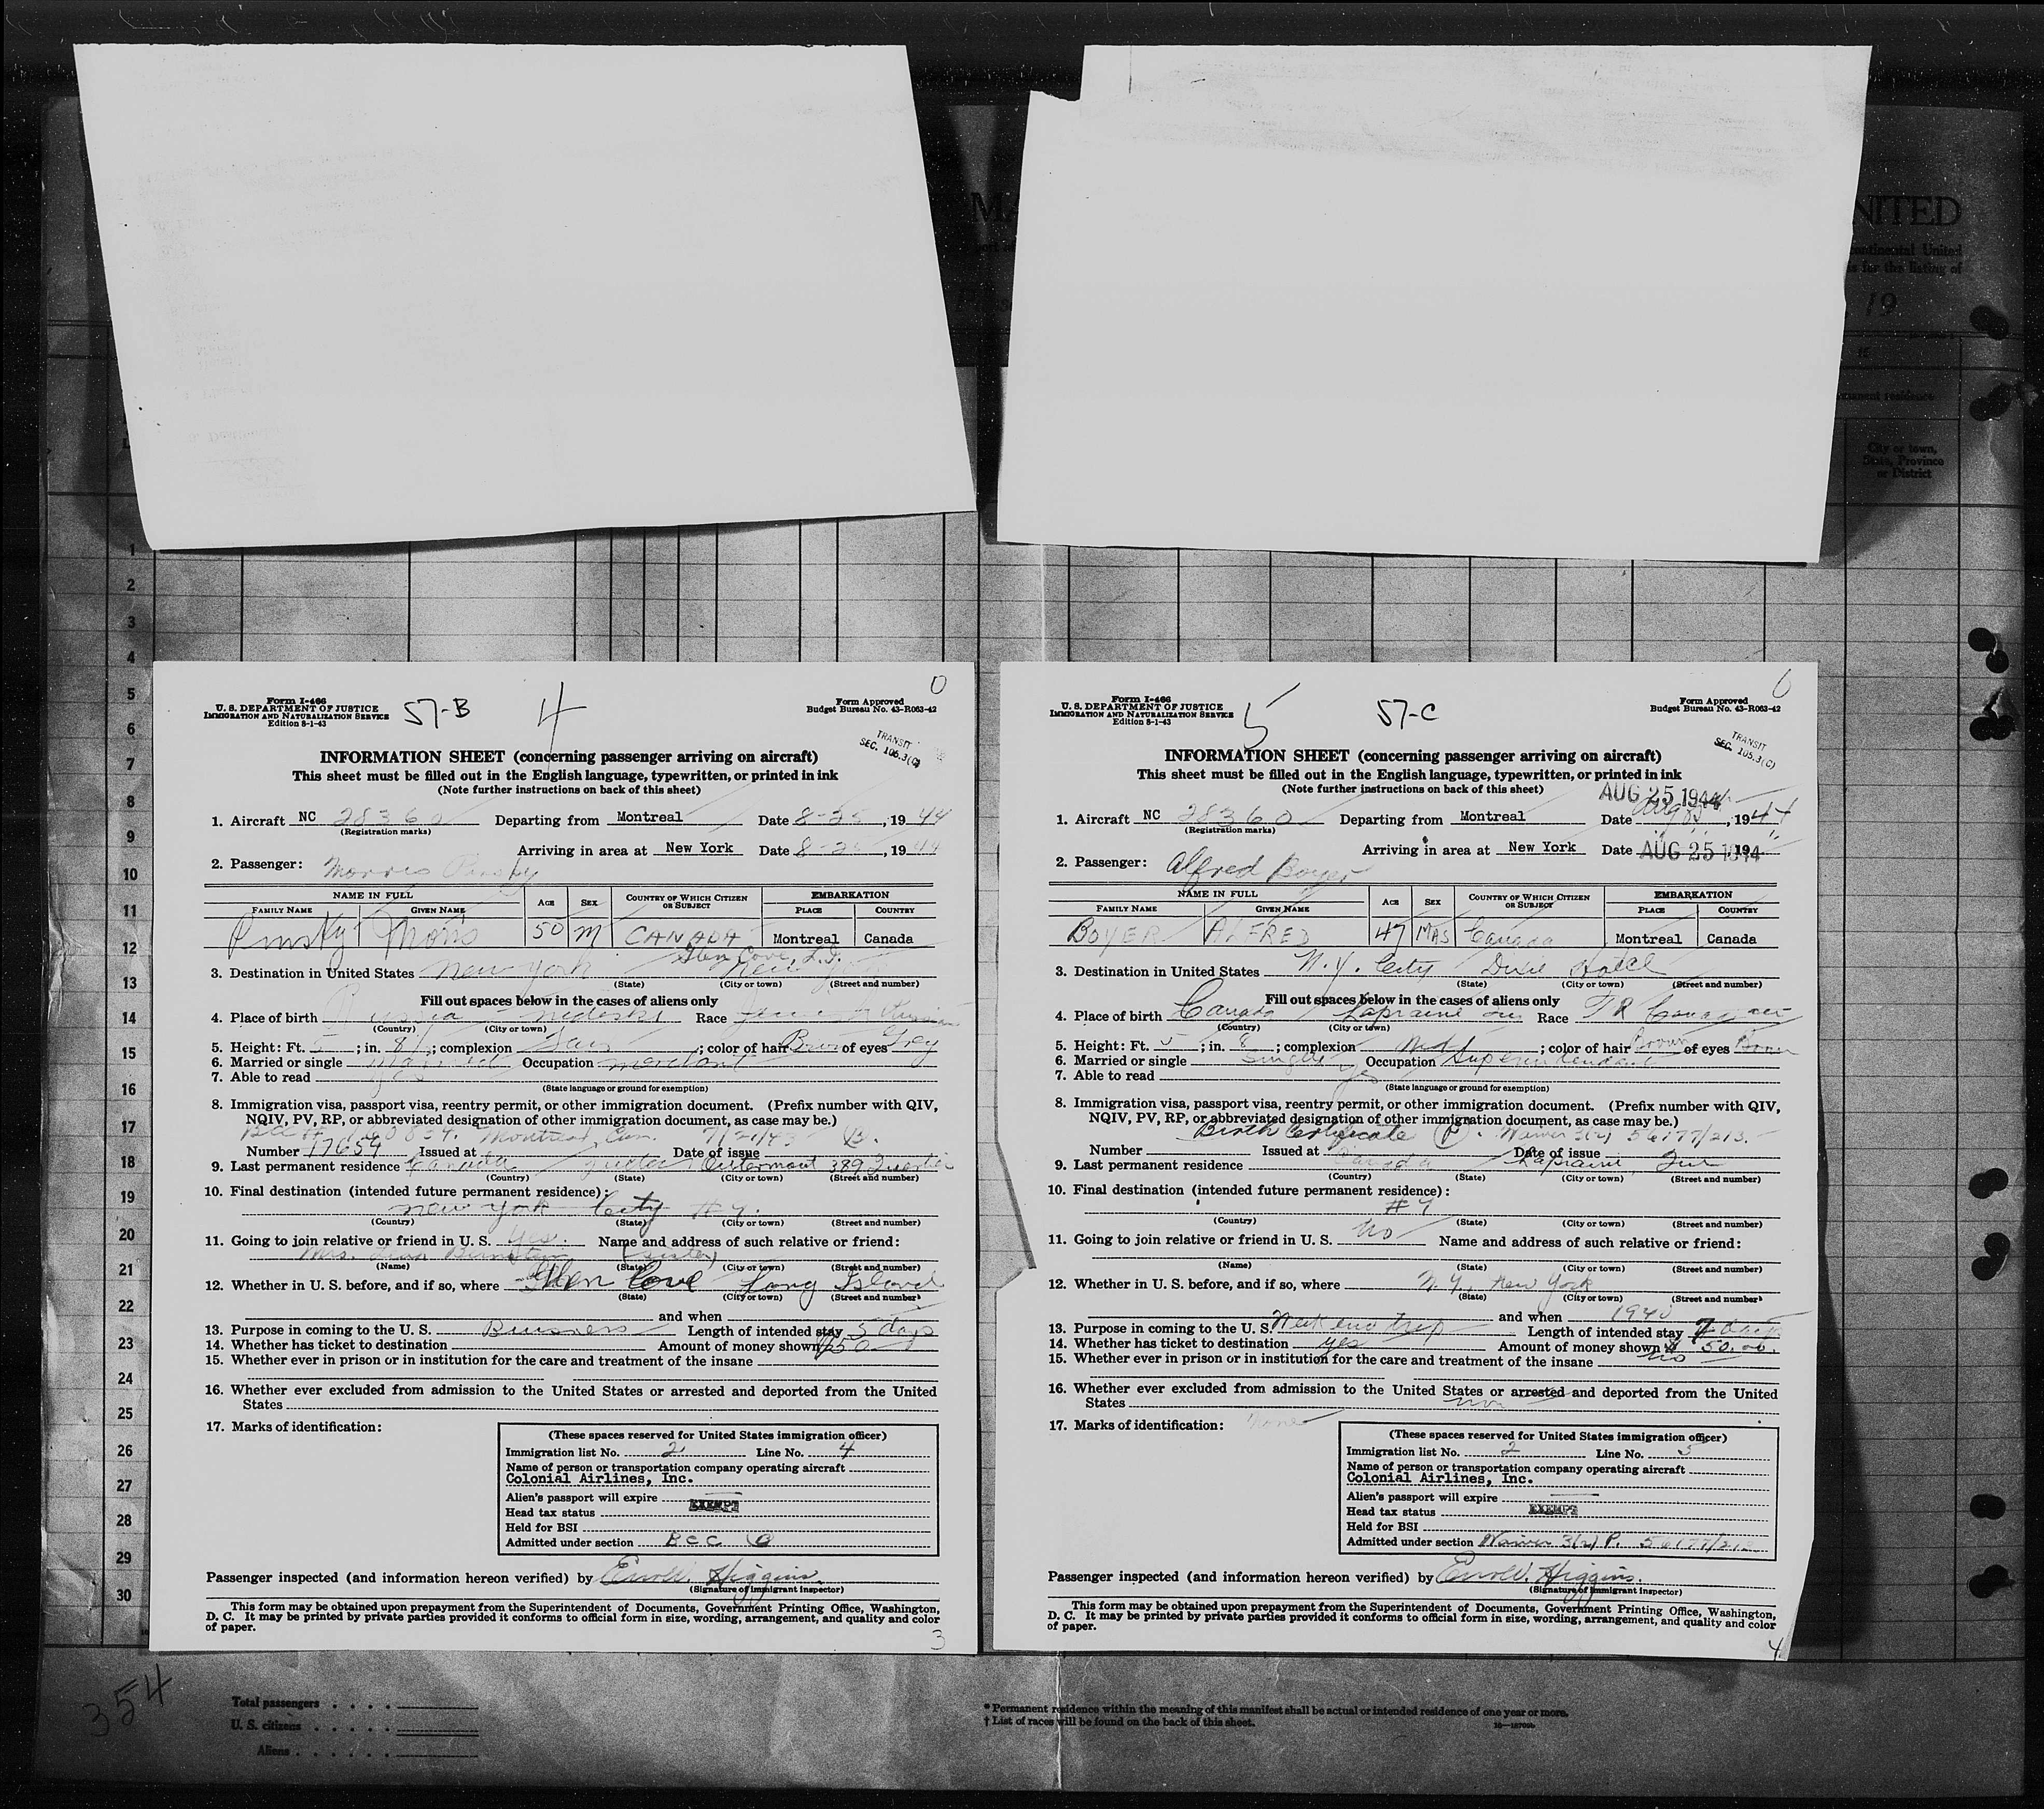 MA
NITED
continental United
is for the listing of
19
manent residence
City or town,
State, Province
or District
1
2
3
4
5
6
7
8
9
10
11
12
13
14
15
16
17
18
19
20
21
22
23
24
25
26
27
28
29
30
Form I-466
U. S. DEPARTMENT OF JUSTICE
IMMIGRATION AND NATURALIZATION SERVICE
Edition 8-1-43
57-B
4
0
Form Approved
Budget Bureau No. 43-R063-42
TRANSIT
SEC. 105.3(C)
INFORMATION SHEET (concerning passenger arriving on aircraft)
This sheet must be filled out in the English language, typewritten, or printed in ink
(Note further instructions on back of this sheet)
1. Aircraft NC 28360 Departing from Montreal Date 8-25, 19 44
(Registration marks)
Arriving in area at New York Date 8-25, 19 44
2. Passenger: Morris Pinsky
NAME IN FULL AGE SEX COUNTRY OF WHICH CITIZEN OR SUBJECT EMBARKATION
FAMILY NAME GIVEN NAME PLACE COUNTRY
Pinsky Morris 50 M CANADA Montreal Canada
Glen Cove, L.I.
3. Destination in United States New York New York
(State) (City or town) (Street and number)
Fill out spaces below in the cases of aliens only
4. Place of birth Russia Race Russian
(Country) (City or town)
5. Height: Ft. 5; in. 8; complexion Fair; color of hair Brown of eyes Grey
6. Married or single Married Occupation merchant
7. Able to read yes
(State language or ground for exemption)
8. Immigration visa, passport visa, reentry permit, or other immigration document. (Prefix number with QIV,
NQIV, PV, RP, or abbreviated designation of other immigration document, as case may be.)
Montreal, Can. B.
Number 17654 Issued at Date of issue
9. Last permanent residence Canada Quebec Outermont 389
(Country) (State) (City or town) (Street and number)
10. Final destination (intended future permanent residence):
New York City #7.
(Country) (State) (City or town) (Street and number)
11. Going to join relative or friend in U. S. Yes. Name and address of such relative or friend:
Mrs. (sister)
(Name) (State) (City or town) (Street and number)
12. Whether in U. S. before, and if so, where Glen Cove Long Island
(State) (City or town) (Street and number)
and when
13. Purpose in coming to the U. S. Business Length of intended stay 5 days
14. Whether has ticket to destination Amount of money shown $50
15. Whether ever in prison or in institution for the care and treatment of the insane
16. Whether ever excluded from admission to the United States or arrested and deported from the United
States
17. Marks of identification:
(These spaces reserved for United States immigration officer)
Immigration list No. 2 Line No. 4
Name of person or transportation company operating aircraft
Colonial Airlines, Inc.
Alien's passport will expire
Head tax status EXEMPT
Held for BSI
Admitted under section BCC B
Passenger inspected (and information hereon verified) by Errol W. Higgins
(Signature of immigrant inspector)
This form may be obtained upon prepayment from the Superintendent of Documents, Government Printing Office, Washington,
D. C. It may be printed by private parties provided it conforms to official form in size, wording, arrangement, and quality and color
of paper.
3
Form I-466
U. S. DEPARTMENT OF JUSTICE
IMMIGRATION AND NATURALIZATION SERVICE
Edition 8-1-43
5
57-C
Form Approved
Budget Bureau No. 43-R063-42
TRANSIT
SEC. 105.3(C)
INFORMATION SHEET (concerning passenger arriving on aircraft)
This sheet must be filled out in the English language, typewritten, or printed in ink
(Note further instructions on back of this sheet)
AUG 25 1944
1. Aircraft NC 28360 Departing from Montreal Date Aug 25, 1944
(Registration marks)
Arriving in area at New York Date AUG 25 1944
2. Passenger: Alfred Boyer
NAME IN FULL AGE SEX COUNTRY OF WHICH CITIZEN OR SUBJECT EMBARKATION
FAMILY NAME GIVEN NAME PLACE COUNTRY
BOYER ALFRED 47 MAS Canada Montreal Canada
3. Destination in United States N.Y. City Dixie Hotel
(State) (City or town) (Street and number)
Fill out spaces below in the cases of aliens only
4. Place of birth Canada Laprairie Race FR Canadian
(Country) (City or town)
5. Height: Ft. 5; in. 8; complexion Med; color of hair Brown of eyes Brown
6. Married or single Single Occupation Superintendant
7. Able to read Yes
(State language or ground for exemption)
8. Immigration visa, passport visa, reentry permit, or other immigration document. (Prefix number with QIV,
NQIV, PV, RP, or abbreviated designation of other immigration document, as case may be.)
Birth Certificate (P). Waiver 3(2) 56177/213.
Number Issued at Date of issue
9. Last permanent residence Canada Laprairie, Que
(Country) (State) (City or town) (Street and number)
10. Final destination (intended future permanent residence):
#7
(Country) (State) (City or town) (Street and number)
11. Going to join relative or friend in U. S. No Name and address of such relative or friend:
(Name) (State) (City or town) (Street and number)
12. Whether in U. S. before, and if so, where N.Y., New York
(State) (City or town) (Street and number)
and when 1940
13. Purpose in coming to the U. S. Week end trip Length of intended stay 7 days
14. Whether has ticket to destination yes Amount of money shown $50.00.
15. Whether ever in prison or in institution for the care and treatment of the insane no
16. Whether ever excluded from admission to the United States or arrested and deported from the United
States
17. Marks of identification: None
(These spaces reserved for United States immigration officer)
Immigration list No. 2 Line No. 5
Name of person or transportation company operating aircraft
Colonial Airlines, Inc.
Alien's passport will expire
Head tax status EXEMPT
Held for BSI
Admitted under section Waiver 3(2) P. 56177/213
Passenger inspected (and information hereon verified) by Errol W. Higgins.
(Signature of immigrant inspector)
This form may be obtained upon prepayment from the Superintendent of Documents, Government Printing Office, Washington,
D. C. It may be printed by private parties provided it conforms to official form in size, wording, arrangement, and quality and color
of paper.
4
354
Total passengers
U. S. citizens
Aliens
* Permanent residence within the meaning of this manifest shall be actual or intended residence of one year or more.
† List of races will be found on the back of this sheet.